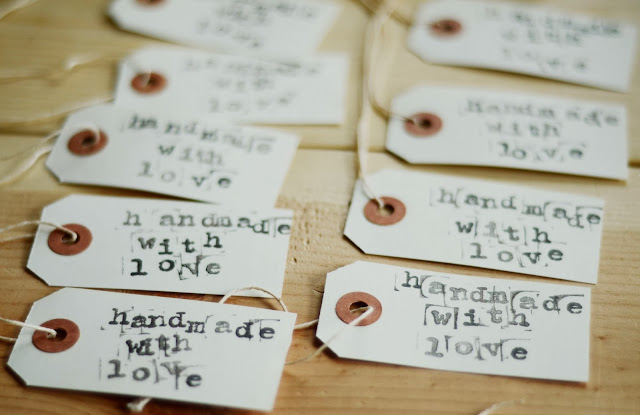 with
love
handmade
with
love
handmade
with
love
handmade
with
love
handmade
with
love
handmade
with
love
handmade
with
love
handmade
with
love